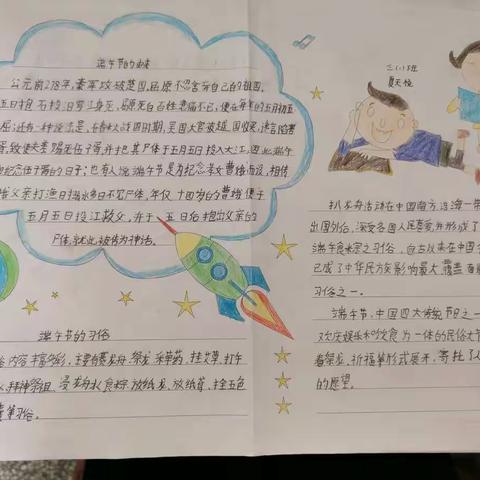 端午节的由来
公元前278年,秦军攻破楚国,屈原不忍舍弃自己的祖国,
五日抱石投汨罗江身死,屈原死后百姓悲痛不已,便在每年的五月初五
屈;还有一种说法是,在春秋战国时期,吴国大败越国,国
致使夫差赐死伍子胥并把其尸体于五月五日投入大江,因此端午
纪念伍子胥的日子;也有人说端午节是为纪念孝女曹娥而设,相传
娥父亲打渔日掉水多日不见尸体,年仅十四岁的曹娥便于
五月五日投江救父,并于五日后抱出父亲的
尸体,就此被传为神话。
端午节的习俗
内容丰富多彩,主要有赛龙舟、祭龙、采草药、挂艾草、打午
水、拜神祭祖、浸龙舟水、食粽、放纸龙、放纸鸢、拴五色
囊等习俗。
三(1)班
夏天悦
扒龙舟活动在中国南方沿海一带
出国外后,深受各国人民喜爱并形成了
端午食粽之习俗,自古以来在中国
已成了中华民族影响最大、覆盖
习俗之一。
端午节,中国四大传统节日之一
欢庆娱乐和饮食为一体的民俗大节
着祭龙、祈福等形式展开,寄托了
的愿望。